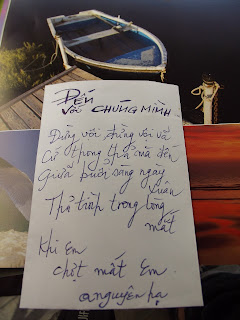 Đến
với CHÚNG MÌNH
Đừng vội đừng vơi vã
Cứ thong thả mà đến
Giữa buổi sáng ngày
Xuân
Thở tình trong lồng
mắt
Khi em
chợt mắt em
nguyên hạ